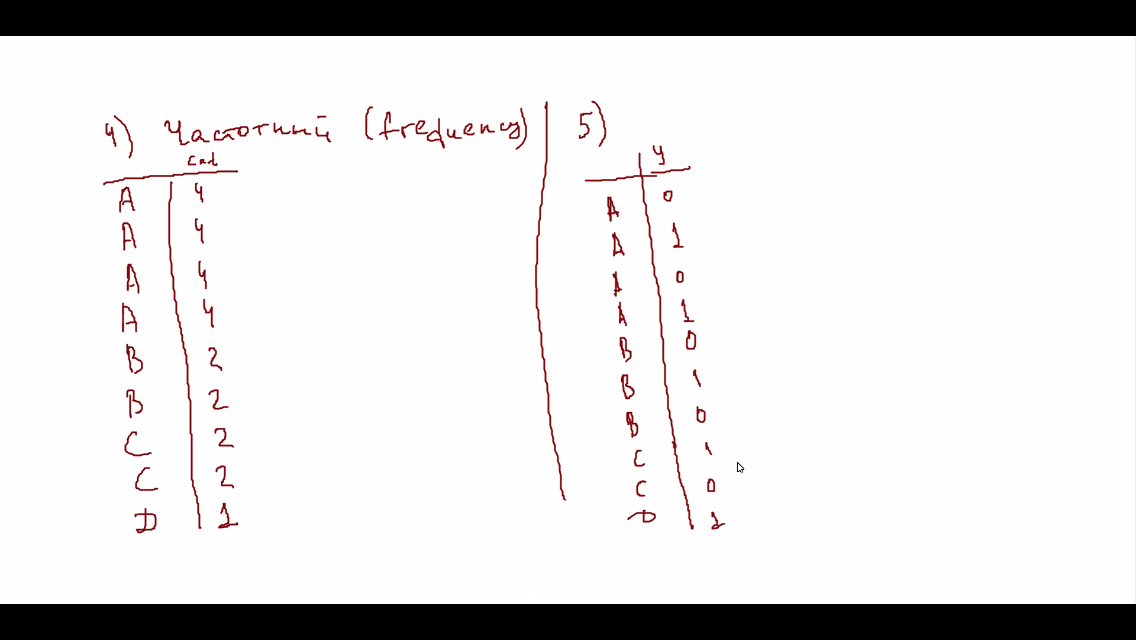 4) Частотный (frequency)
A 4
A 4
A 4
A 4
B 2
B 2
C 2
C 2
D 1
5)
y
A 0
A 1
A 0
A 1
B 0
B 1
B 0
C 1
C 0
D 1